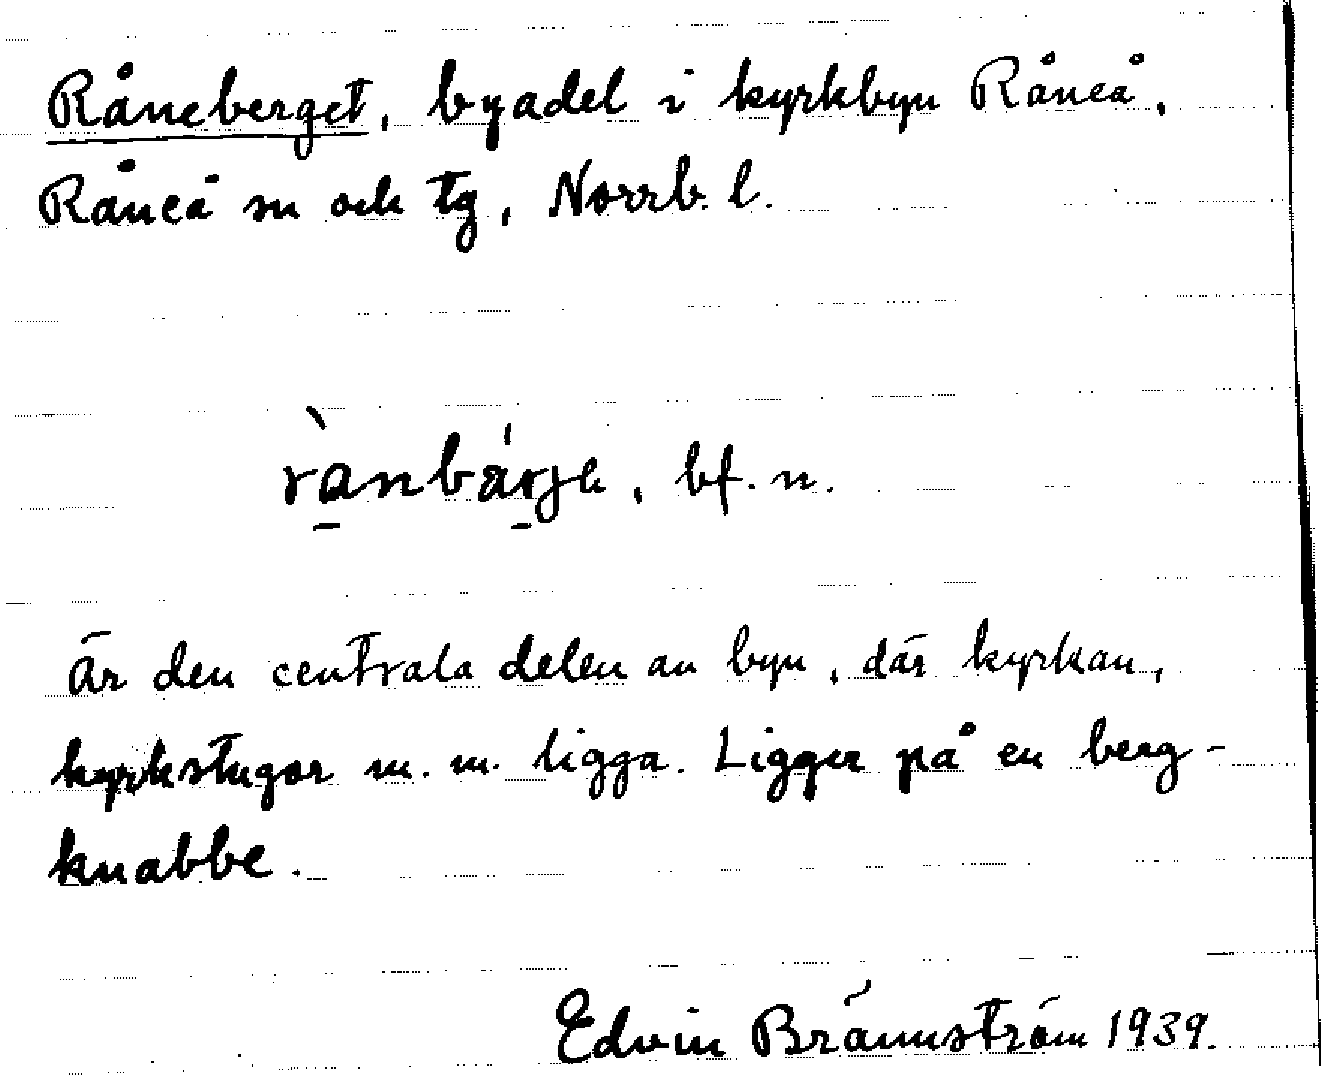 Råneberget, byadel i kyrkbyn Råneå,
Råneå sn och tg, Norrb. l.
bf. n.
Är den centrala delen av byn, där kyrkan,
kyrkstugor m. m. ligga. Ligger på en berg-
knabbe.
Edvin Brännström 1939.